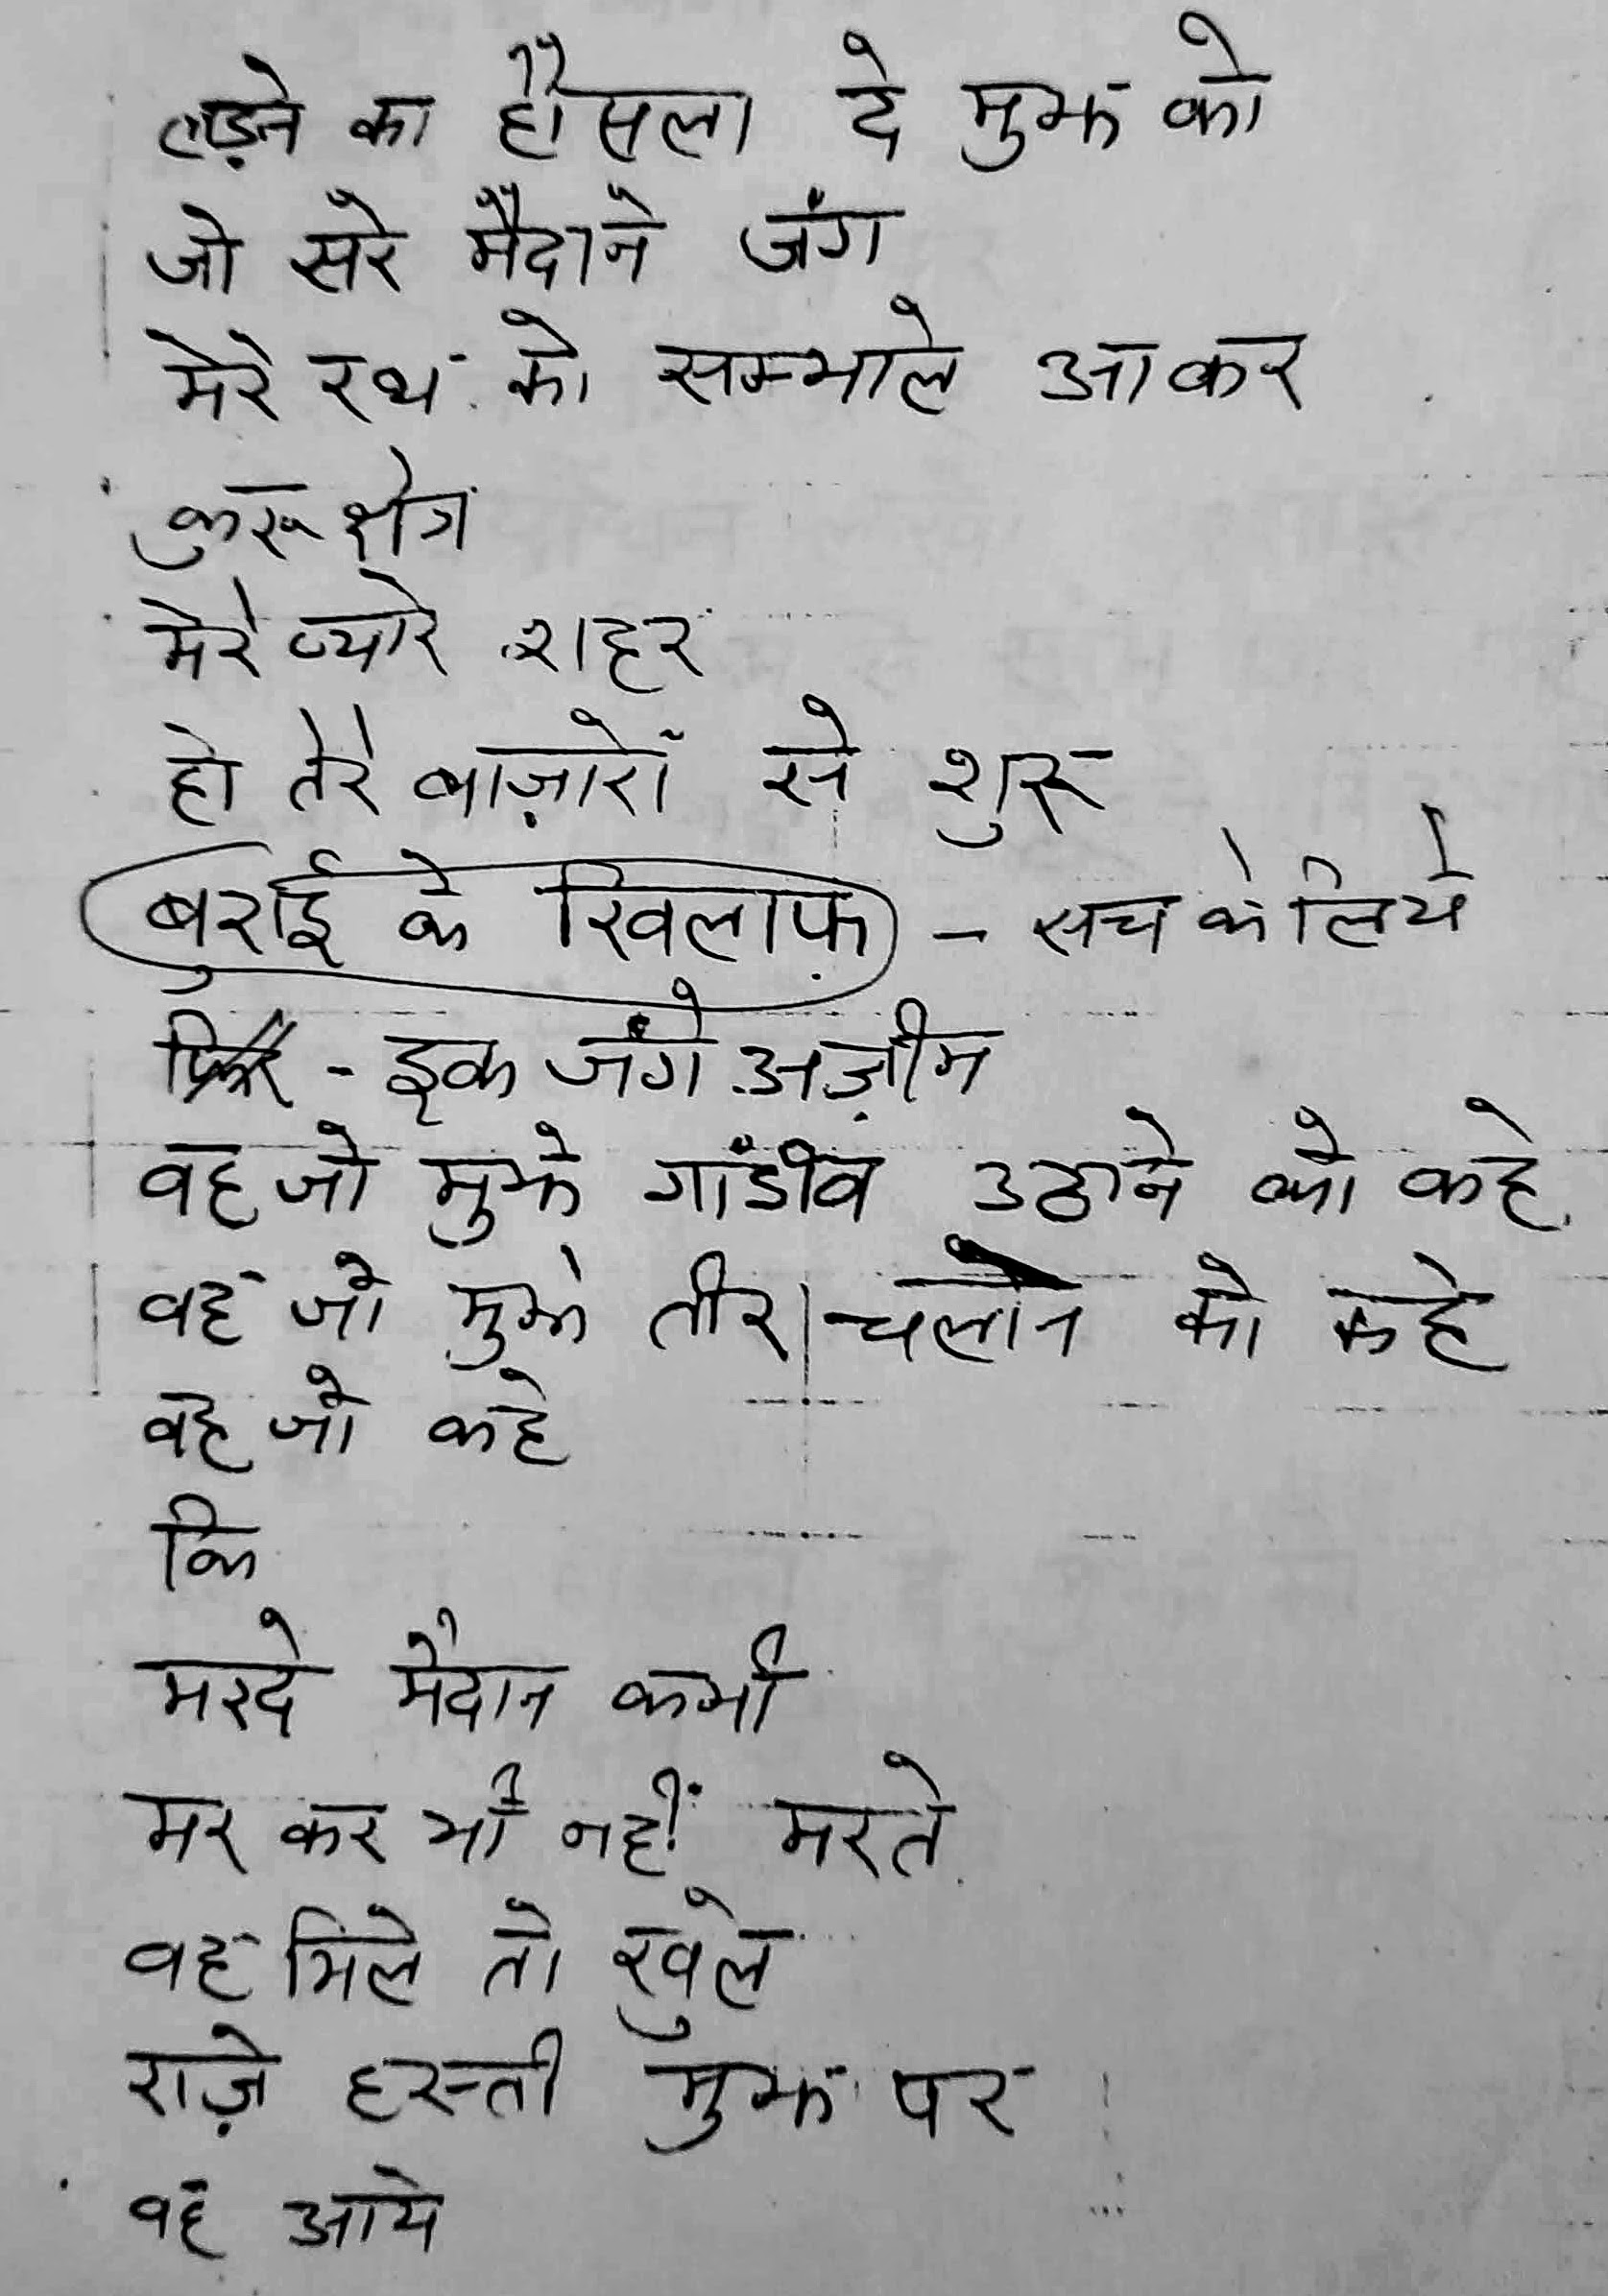 लड़ने का हौसला दे मुझ को
जो सरे मैदाने जंग
मेरे रथ को सम्भाले आकर
कुरूक्षेत्र
मेरे प्यारे शहर
हो तेरे बाज़ारों से शुरू
बुराई के खिलाफ़ - सच के लिये
फिर - इक जंगे अज़ीम
वह जो मुझे गांडीव उठाने को कहे
वह जो मुझे तीर चलाने को कहे
वह जो कहे
कि
मरदे मैदान कभी
मर कर भी नहीं मरते
वह मिले तो खुले
राज़े हस्ती मुझ पर
वह आये